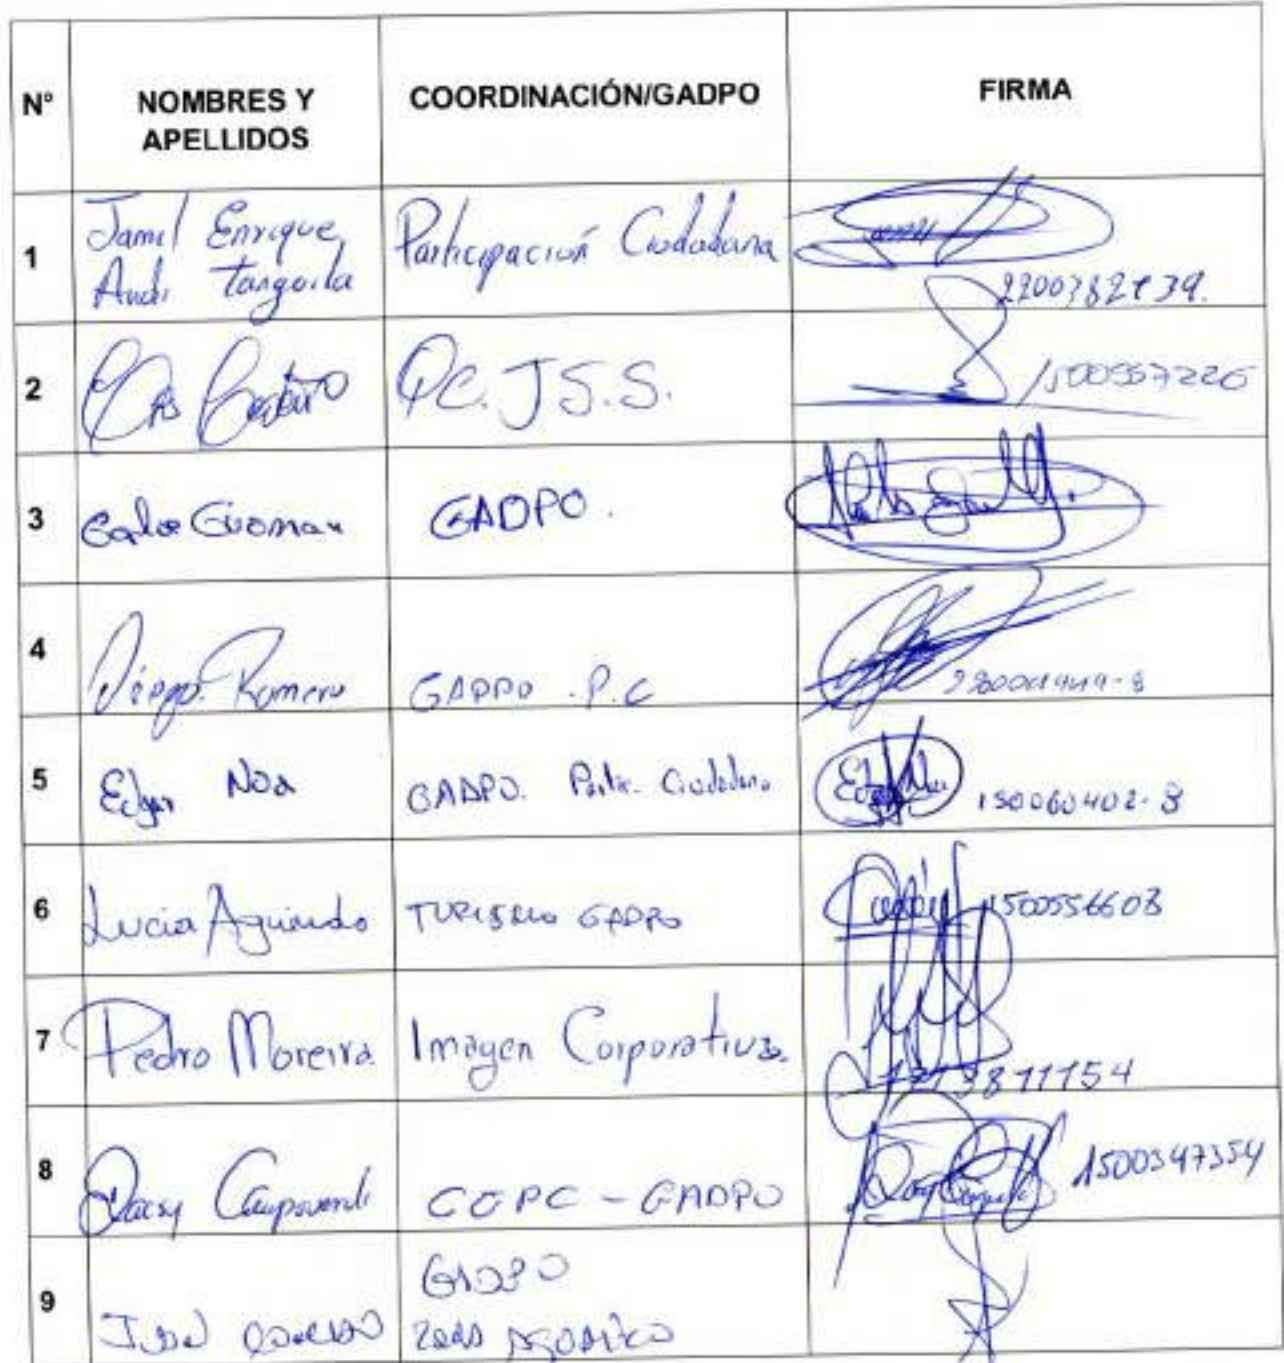 N° NOMBRES Y APELLIDOS COORDINACIÓN/GADPO FIRMA
1 Jamil Enrique Participación Ciudadana
Andi Tanguila
2 P.C. J S.S. 1500557226
3 Carlos Guzman GADPO.
4 Diego Romero GADPO . P.C
5 Edgar Noa GADPO. Partic. Ciudadana 150060402-8
6 Lucia Aguinda TURISMO GADPO 1500556608
7 Pedro Moreira Imagen Corporativa.
8 Daisy Campoverde CGPC - GADPO 1500347354
9 GADPO